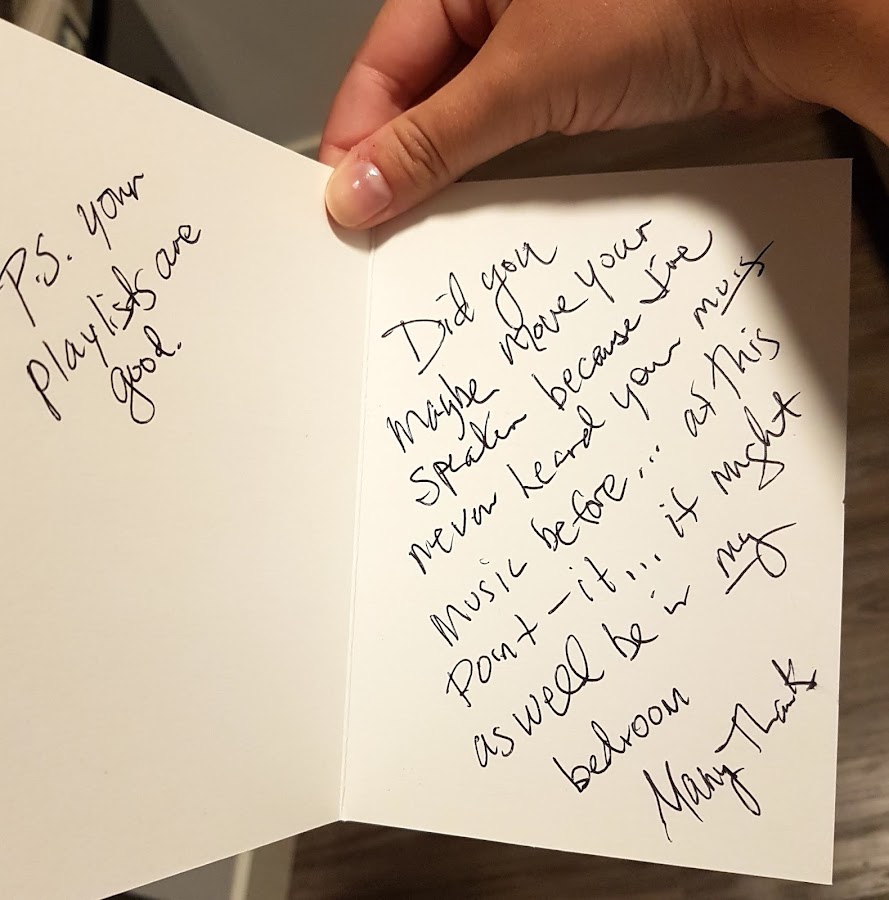 P.S. your
playlists are
good.
Did you
maybe move your
speaker because I've
never heard your music
music before... at this
point - it... it might
as well be in my
bedroom
Many Thanks